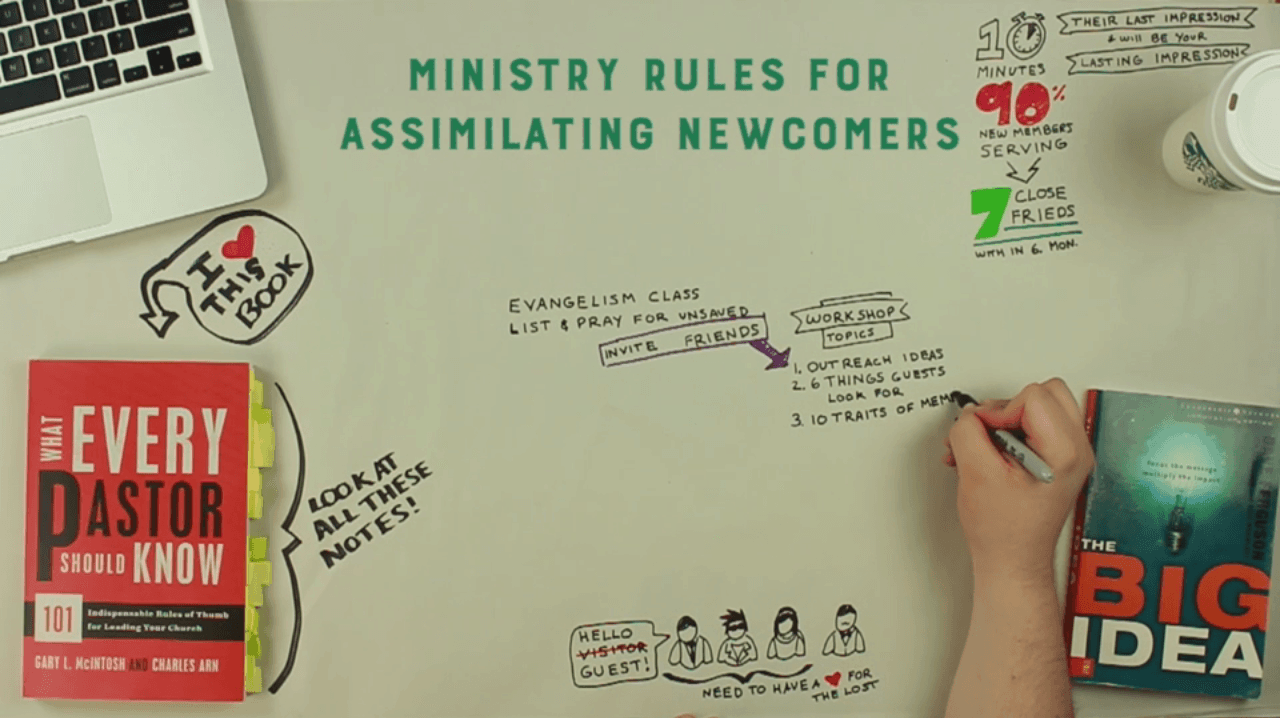 MINISTRY RULES FOR
ASSIMILATING NEWCOMERS
10
MINUTES
THEIR LAST IMPRESSION
& WILL BE YOUR
LASTING IMPRESSION
90%
NEW MEMBERS
SERVING
7 CLOSE
FRIEDS
WITH IN 6. MON.
I ❤
THIS
BOOK
EVANGELISM CLASS
LIST & PRAY FOR UNSAVED
INVITE FRIENDS
WORKSHOP
TOPICS
1. OUTREACH IDEAS
2. 6 THINGS GUESTS
LOOK FOR
3. 10 TRAITS OF MEM
WHAT
EVERY
PASTOR
SHOULD KNOW
101
Indispensable Rules of Thumb
for Leading Your Church
GARY L. McINTOSH AND CHARLES ARN
LOOK AT
ALL THESE
NOTES!
focus the message
multiply the impact
FERGUSON
THE
BIG
IDEA
HELLO
VISITOR
GUEST!
NEED TO HAVE A ❤ FOR
THE LOST